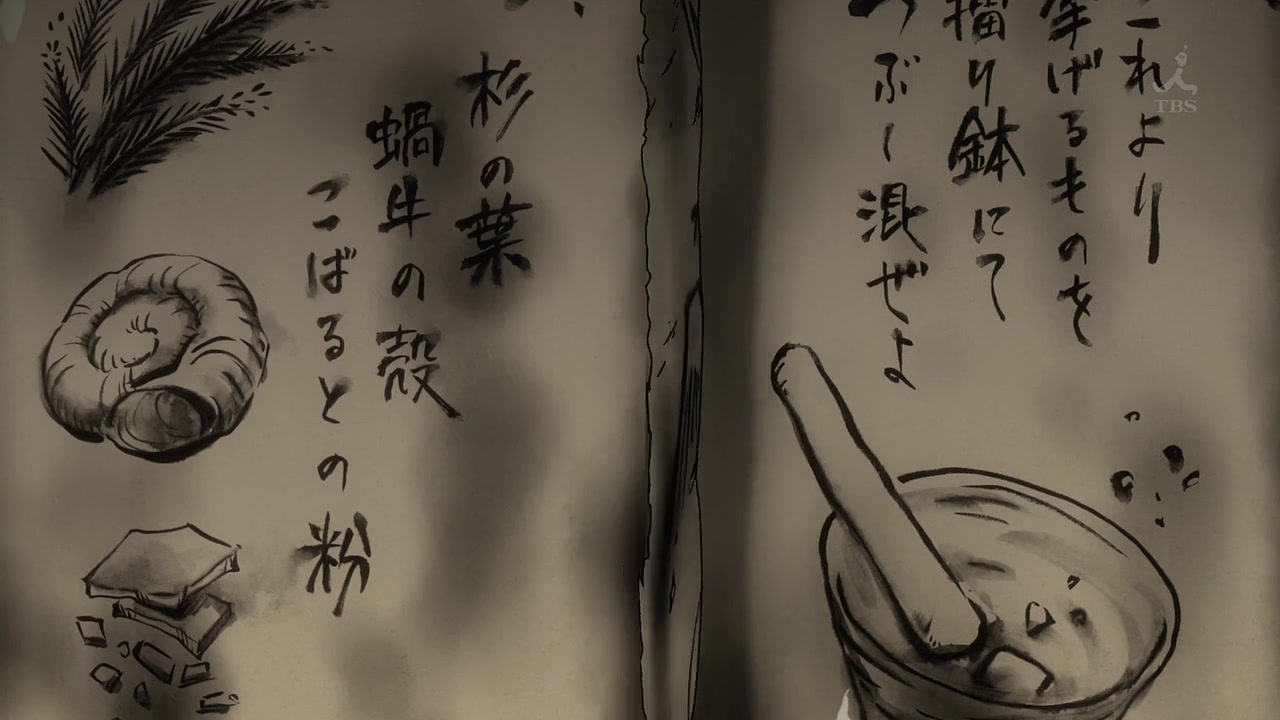 これより
挙げるものを
擂り鉢にて
つぶし混ぜよ
杉の葉
蝸牛の殻
こばるとの粉
TBS